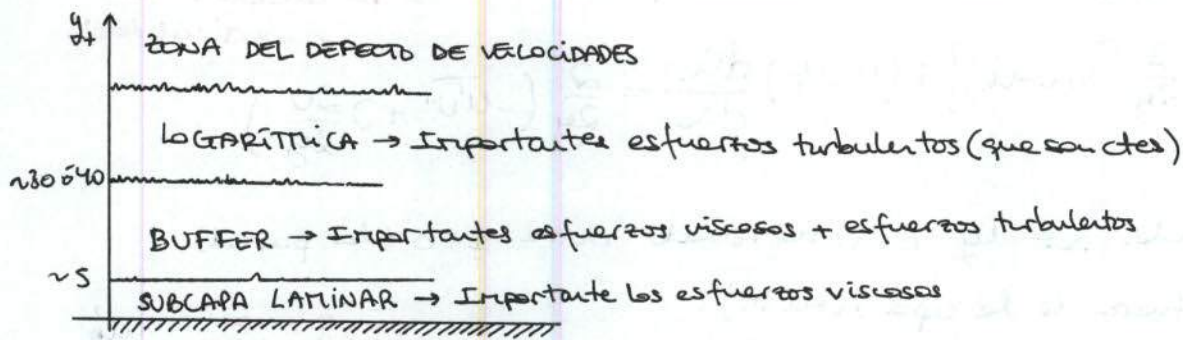 y+
ZONA DEL DEFECTO DE VELOCIDADES
LOGARÍTMICA → Importantes esfuerzos turbulentos (que son ctes)
~30 ó 40
BUFFER → Importantes esfuerzos viscosos + esfuerzos turbulentos
~5
SUBCAPA LAMINAR → Importante los esfuerzos viscosos